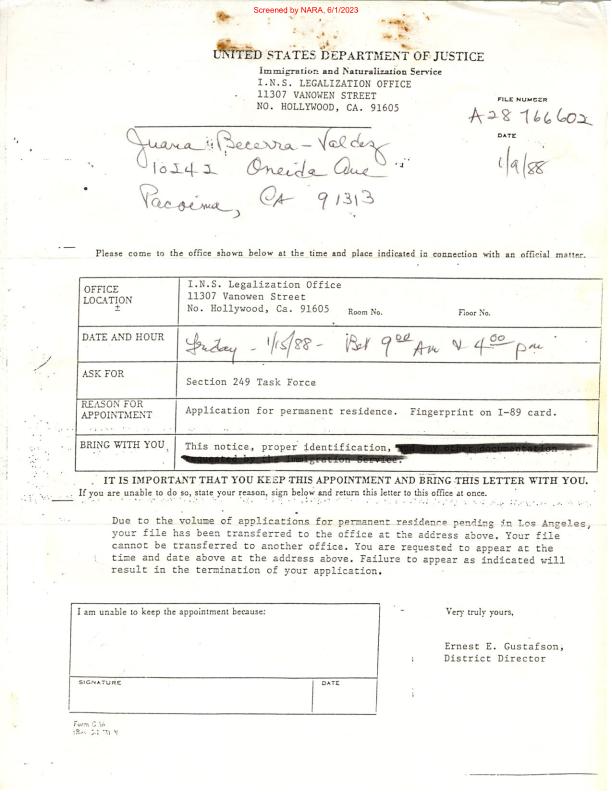 Screened by NARA, 6/1/2023
UNITED STATES DEPARTMENT OF JUSTICE
Immigration and Naturalization Service
I.N.S. LEGALIZATION OFFICE
11307 VANOWEN STREET
NO. HOLLYWOOD, CA. 91605
FILE NUMBER
A28 766602
DATE
1/9/88
Juana Becerra-Valdez
10242 Oneida Ave
Pacoima, CA 91313
Please come to the office shown below at the time and place indicated in connection with an official matter.
OFFICE LOCATION
I.N.S. Legalization Office
11307 Vanowen Street
No. Hollywood, Ca. 91605 Room No. Floor No.
DATE AND HOUR
Friday - 1/15/88 - Bet 9:00 Am & 4:00 pm
ASK FOR
Section 249 Task Force
REASON FOR APPOINTMENT
Application for permanent residence. Fingerprint on I-89 card.
BRING WITH YOU
This notice, proper identification,
IT IS IMPORTANT THAT YOU KEEP THIS APPOINTMENT AND BRING THIS LETTER WITH YOU.
If you are unable to do so, state your reason, sign below and return this letter to this office at once.
Due to the volume of applications for permanent residence pending in Los Angeles,
your file has been transferred to the office at the address above. Your file
cannot be transferred to another office. You are requested to appear at the
time and date above at the address above. Failure to appear as indicated will
result in the termination of your application.
I am unable to keep the appointment because:
SIGNATURE
DATE
Very truly yours,
Ernest E. Gustafson,
District Director